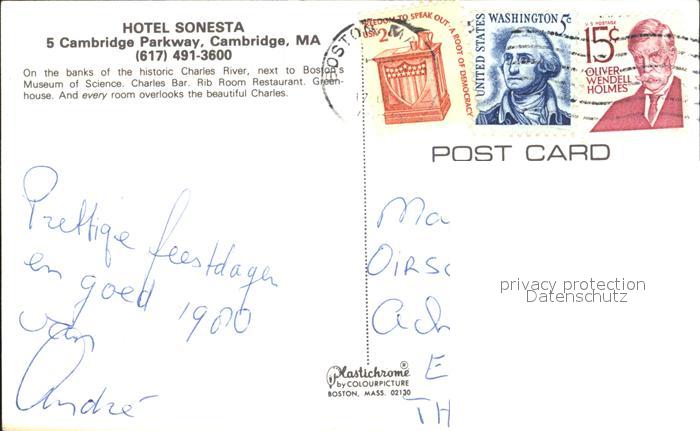 HOTEL SONESTA
5 Cambridge Parkway, Cambridge, MA
(617) 491-3600
On the banks of the historic Charles River, next to Boston's
Museum of Science. Charles Bar. Rib Room Restaurant. Green-
house. And every room overlooks the beautiful Charles.
BOSTON
FREEDOM TO SPEAK OUT · A ROOT OF DEMOCRACY
USA 2c
UNITED STATES
WASHINGTON 5¢
U S POSTAGE
15¢
OLIVER
WENDELL
HOLMES
POST CARD
Prettige feestdagen
en goed 1980
van
André
Ma
OIRSC
Ach
E
TH
privacy protection
Datenschutz
Plastichrome®
by COLOURPICTURE
BOSTON, MASS. 02130